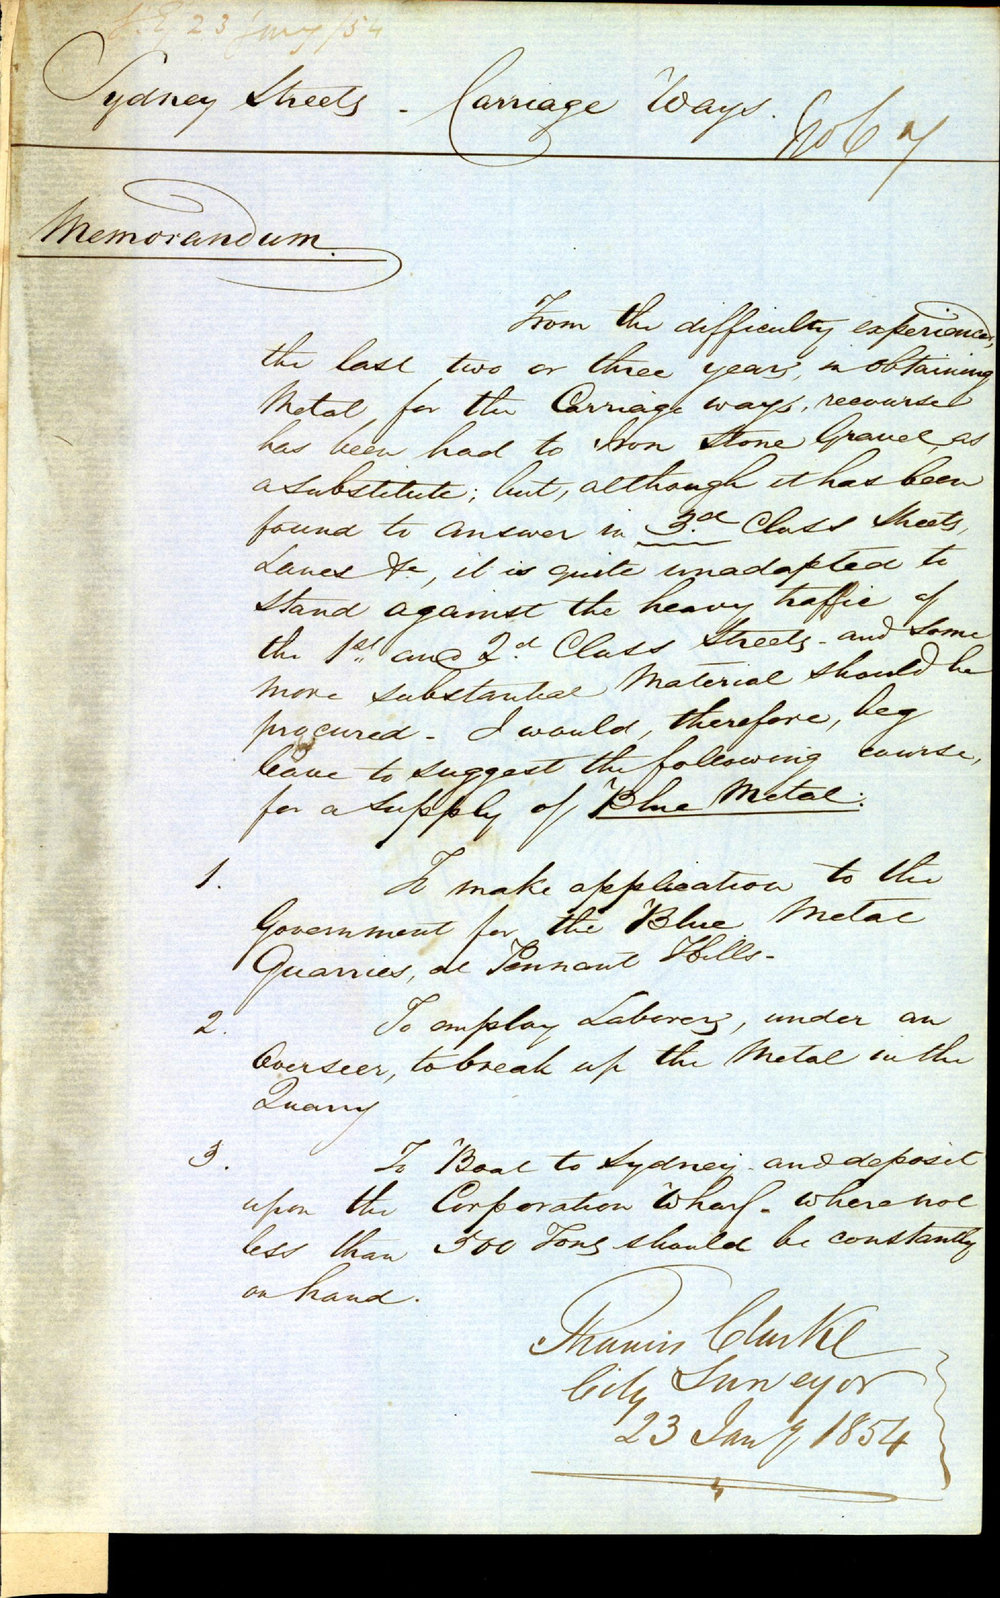 23 Jany /54
Sydney Streets - Carriage Ways.
No 67
Memorandum.
From the difficulty experienced,
the last two or three years, in obtaining
Metal for the Carriage ways, recourse
has been had to Iron Stone Gravel, as
a substitute; but, although it has been
found to answer in 3.rd Class Streets,
Lanes &c, it is quite unadapted to
stand against the heavy traffic of
the 1st and 2.d Class Streets - and some
more substantial Material should be
procured - I would, therefore, beg
leave to suggest the following course,
for a supply of Blue Metal:
1. To make application to the
Government for the Blue Metal
Quarries, at Pennant Hills -
2. To employ Laborers, under an
Overseer, to break up the Metal in the
Quarry
3. To Boat to Sydney - and deposit
upon the Corporation Wharf - where not
less than 500 Tons should be constantly
on hand.
Francis Clarke
City Surveyor
23 Jany 1854